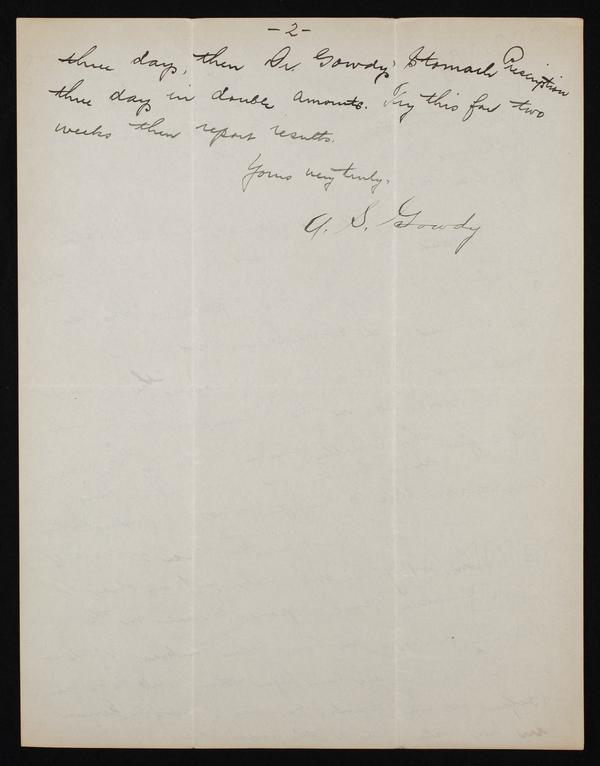 -2-
three days, then Dr. Gowdys Stomach Prescription
three day in double amounts. Try this for two
weeks then report results.
Yours very truly,
A. S. Gowdy